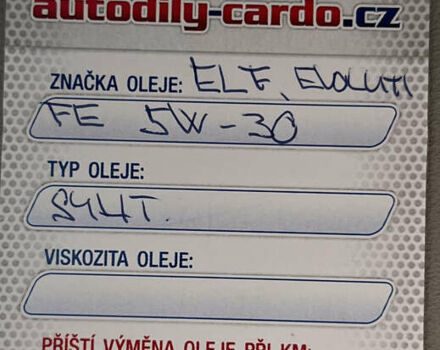 autodily-cardo.cz
ZNAČKA OLEJE: ELF, Evoluti
FE 5W-30
TYP OLEJE:
SYHT.
VISKOZITA OLEJE:
PŘÍŠTÍ VÝMĚNA OLEJE PŘI KM: